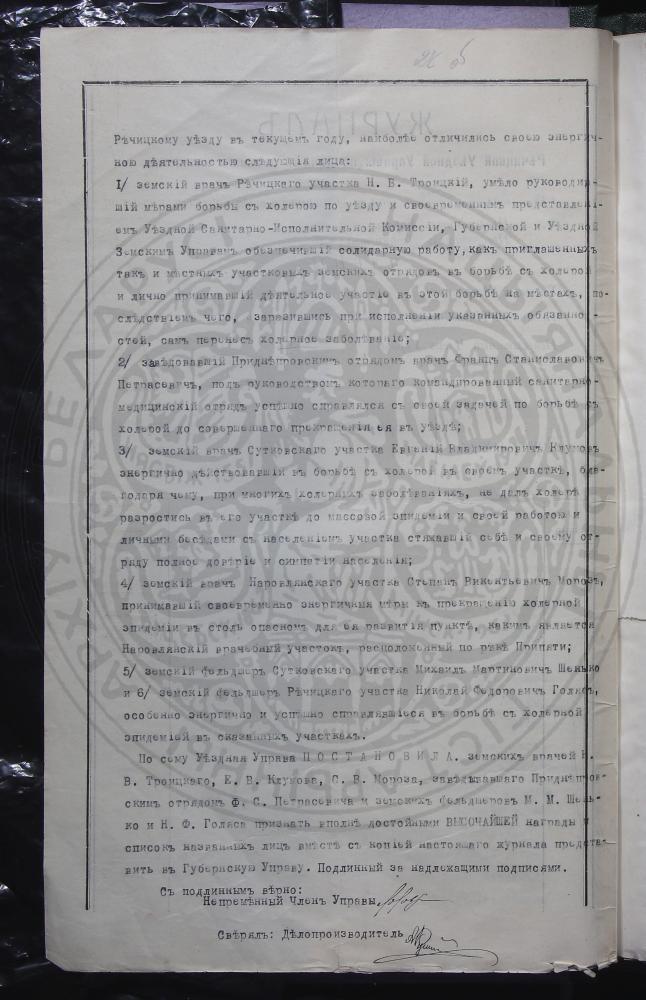 Рѣчицкому уѣзду въ текущемъ году, наиболѣе отличились своею энергич-
ною дѣятельностью слѣдующія лица:
1/ земскій врачъ Рѣчицкаго участка Н. В. Троицкій, умѣло руководив-
шій мѣрами борьбы съ холерою по уѣзду и своевременнымъ представлені-
емъ Уѣздной Санитарно-Исполнительной Комиссіи, Губернской и Уѣздной
Земскимъ Управамъ обезпечившій солидарную работу, какъ приглашенныхъ
такъ и мѣстныхъ участковыхъ земскихъ отрядовъ въ борьбѣ съ холерой
и лично принимавшій дѣятельное участіе въ этой борьбѣ на мѣстахъ, по-
слѣдствіемъ чего, заразившись при исполненіи указанныхъ обязанно-
стей, самъ перенесъ холерное заболѣваніе;
2/ завѣдовавшій Придніѣпровскимъ отрядомъ врачъ Францъ Станиславовичъ
Петрасевичъ, подъ руководствомъ котораго командированный санитарно-
медицинскій отрядъ успѣшно справлялся съ своей задачей по борьбѣ съ
холерой до совершеннаго прекращенія ея въ уѣздѣ;
3/ земскій врачъ Сутковскаго участка Евгеній Владиміровичъ Клумовъ
энергично дѣйствовавшій въ борьбѣ съ холерой въ своемъ участкѣ, бла-
годаря чему, при многихъ холерныхъ заболѣваніяхъ, не далъ холерѣ
разростись въ его участкѣ до массовой эпидеміи и своей работою и
личными бесѣдами съ населеніемъ участка стяжавшій себѣ и своему от-
ряду полное довѣріе и симпатіи населенія;
4/ земскій врачъ Наровлянскаго участка Степанъ Викентьевичъ Морозъ,
принимавшій своевременно энергичныя мѣры къ прекращенію холерной
эпидеміи въ столь опасномъ для ея развитія пунктѣ, какимъ является
Наровлянскій врачебный участокъ, расположенный по рѣкѣ Припяти;
5/ земскій фельдшеръ Сутковскаго участка Михаилъ Мартиновичъ Шенько
и 6/ земскій фельдшеръ Рѣчицкаго участка Николай Федоровичъ Голясъ,
особенно энергично и успѣшно справлявшіеся въ борьбѣ съ холерной
эпидеміей въ сказанныхъ участкахъ.
По сему Уѣздная Управа ПОСТАНОВИЛА: земскихъ врачей Н.
В. Троицкаго, Е. В. Клумова, С. В. Мороза, завѣдывавшаго Приднѣпров-
скимъ отрядомъ Ф. С. Петрасевича и земскихъ фельдшеровъ М. М. Шень-
ко и Н. Ф. Голяса признать вполнѣ достойными ВЫСОЧАЙШЕЙ награды и
списокъ названныхъ лицъ вмѣстѣ съ копіей настоящаго журнала предста-
вить въ Губернскую Управу. Подлинный за надлежащими подписями.
Съ подлиннымъ вѣрно:
Непремѣнный Членъ Управы
Свѣрялъ: Дѣлопроизводитель